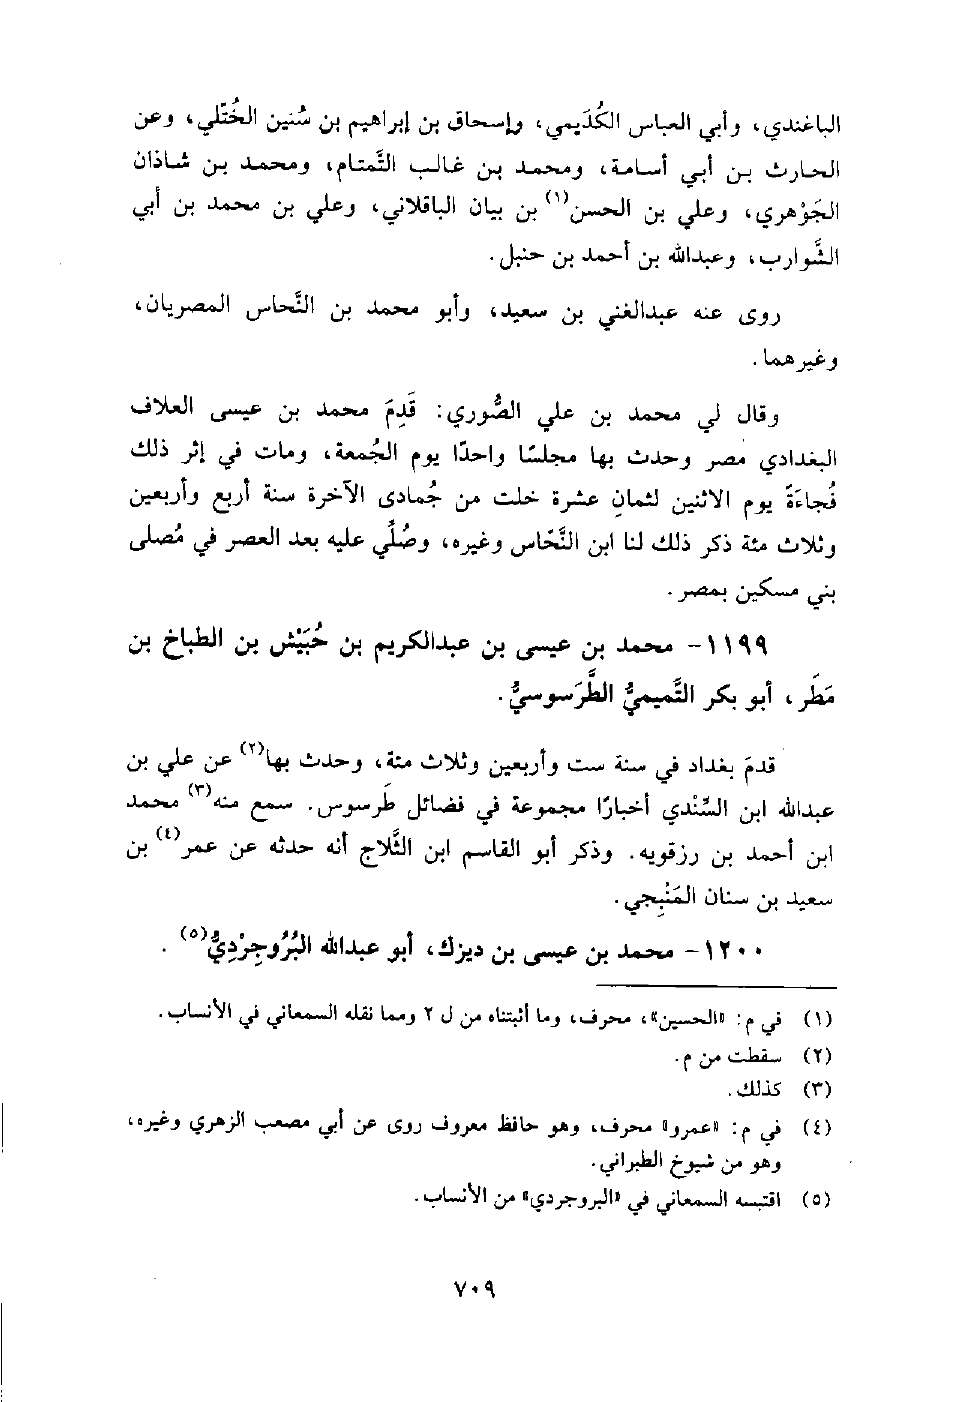 الباغندي، وأبي العباس الكُدَيمي، وإسحاق بن إبراهيم بن سُنَين الخُتَّلي، وعن
الحارث بن أبي أسامة، ومحمد بن غالب التَّمتام، ومحمد بن شاذان
الجَوْهري، وعلي بن الحسن(١) بن بيان الباقلاني، وعلي بن محمد بن أبي
الشَّوارب، وعبدالله بن أحمد بن حنبل.
روى عنه عبدالغني بن سعيد، وأبو محمد بن النَّحاس المصريان،
وغيرهما.
وقال لي محمد بن علي الصُّوري: قَدِمَ محمد بن عيسى العلاف
البغدادي مصر وحدث بها مجلسًا واحدًا يوم الجُمعة، ومات في إثر ذلك
فُجاءَةً يوم الاثنين لثمانِ عشرة خلت من جُمادى الآخرة سنة أربع وأربعين
وثلاث مئة ذكر ذلك لنا ابن النَّحّاس وغيره، وصُلِّي عليه بعد العصر في مُصلى
بني مسكين بمصر.
١١٩٩- محمد بن عيسى بن عبدالكريم بن حُبَيْش بن الطباخ بن
مَطَر، أبو بكر التَّميميُّ الطَّرَسوسيُّ.
قدمَ بغداد في سنة ست وأربعين وثلاث مئة، وحدث بها(٢) عن علي بن
عبدالله ابن السِّنْدي أخبارًا مجموعة في فضائل طَرسوس. سمع منه(٣) محمد
ابن أحمد بن رزقويه. وذكر أبو القاسم ابن الثَّلاج أنه حدثه عن عمر(٤) بن
سعيد بن سنان المَنْبِجي.
١٢٠٠- محمد بن عيسى بن ديزك، أبو عبدالله البُرُوجِرْدِيُّ(٥).
(١) في م: «الحسين»، محرف، وما أثبتناه من ل ٢ ومما نقله السمعاني في الأنساب.
(٢) سقطت من م.
(٣) كذلك.
(٤) في م: «عمرو» محرف، وهو حافظ معروف روى عن أبي مصعب الزهري وغيره،
وهو من شيوخ الطبراني.
(٥) اقتبسه السمعاني في «البروجردي» من الأنساب.
٧٠٩